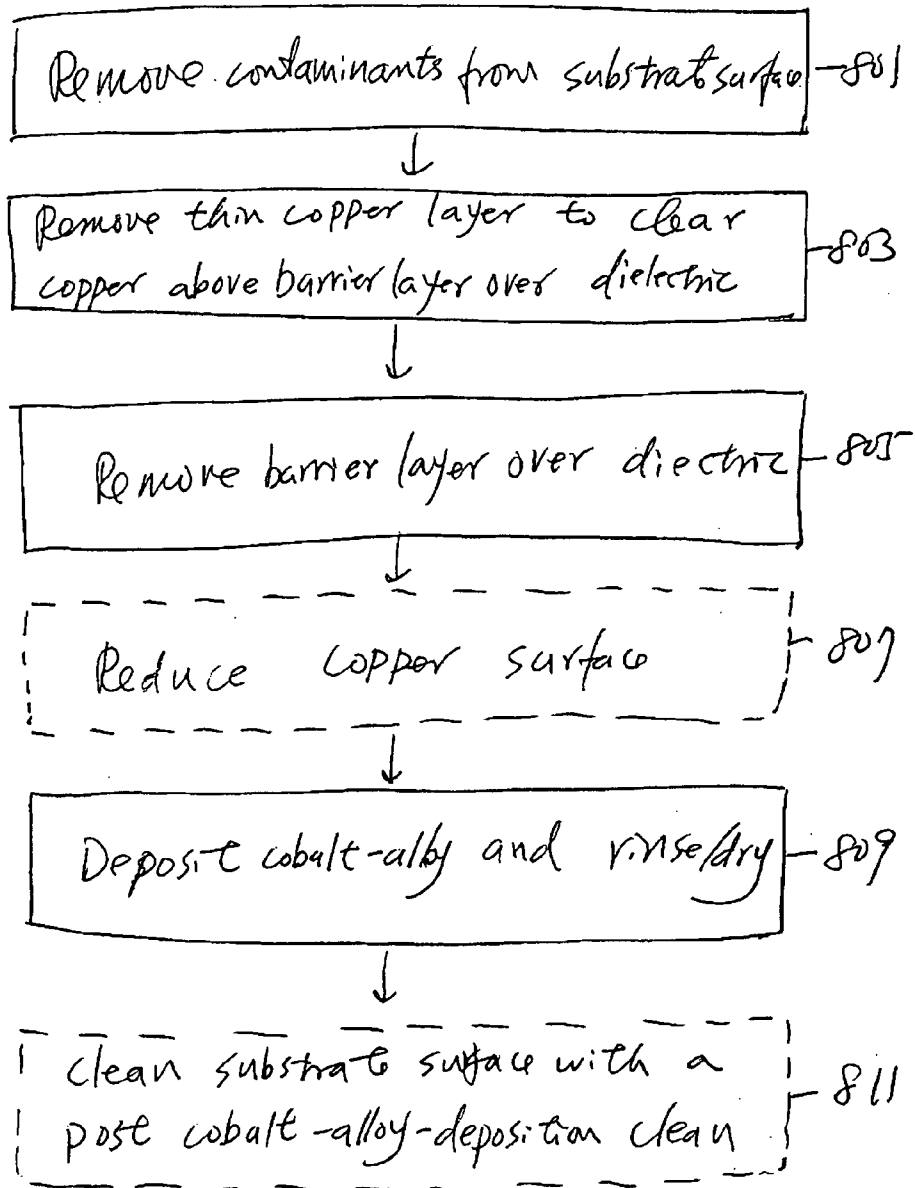 Remove contaminants from substrat surface 801
Remove thin copper layer to clear
copper above barrier layer over dielectric 803
Remove barrier layer over diectric 805
Reduce copper surface 807
Deposit cobalt-alloy and rinse/dry 809
clean substrate surface with a
post cobalt-alloy-deposition clean 811